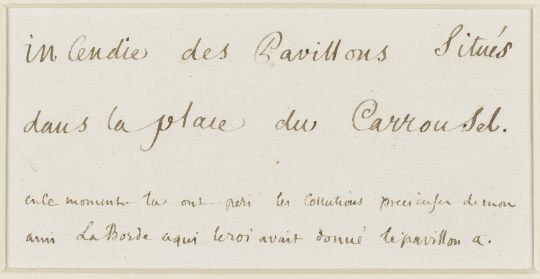 inCendie des Pavillons Situés
dans la place du Carrousel.
en ce moment la ont peri les Collections precieuses de mon
ami La Borde a qui le roi avait donné le pavillon a.